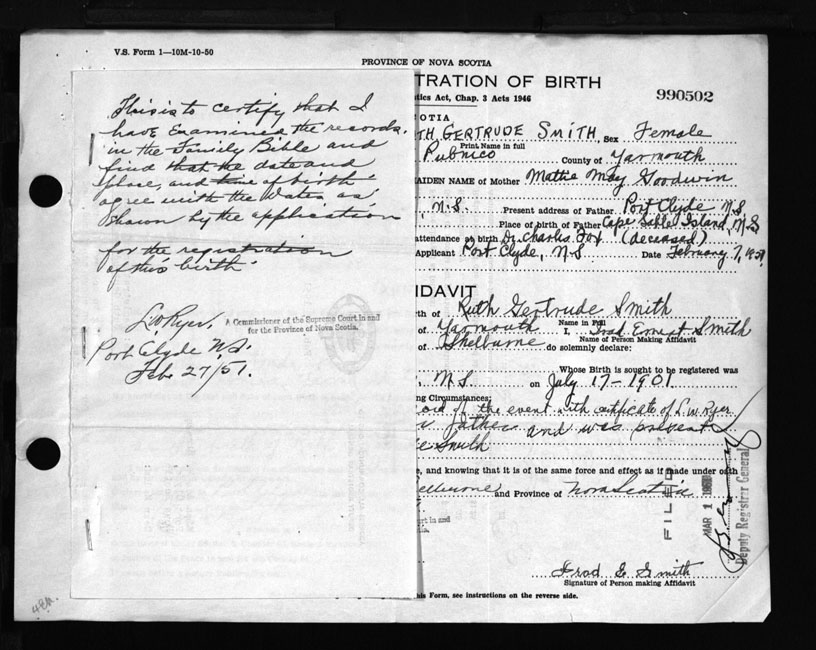 V.S. Form 1—10M-10-50
PROVINCE OF NOVA SCOTIA
TRATION OF BIRTH
tics Act, Chap. 3 Acts 1946
990502
This is to certify that I
have Examined the records
in the Family Bible and
find that the date and
place, and time of birth
agree with the dates as
shown by the application
for the registration
of this birth
L W Ryer.
A Commissioner of the Supreme Court in and
for the Province of Nova Scotia.
Port Clyde N.S.
Feb 27/51.
COTIA
TH GERTRUDE SMITH, Sex Female
Print Name in full
Pubnico County of Yarmouth
AIDEN NAME of Mother Mattie May Goodwin
, N.S. Present address of Father Port Clyde N.S
Place of birth of Father Cape Sable Island, N.S
attendance at birth Dr. Charles Fox (deceased)
Applicant Port Clyde, N.S Date February 7, 1951
IDAVIT
rth of Ruth Gertrude Smith
Name in Full
of Yarmouth I, Frad Ernest Smith
Name of Person Making Affidavit
of Shelburne do solemnly declare:
Whose Birth is sought to be registered was
, N.S. on July 17-1901.
ng Circumstances:
of the event with certificate of L. W. Ryer
father and was present
Smith
e, and knowing that it is of the same force and effect as if made under oath
elburne and Province of Nova Scotia
rt in and
tia.
FILED
MAR 1
Deputy Registrar General
Frad E Smith
Signature of Person making Affidavit
his Form, see instructions on the reverse side.